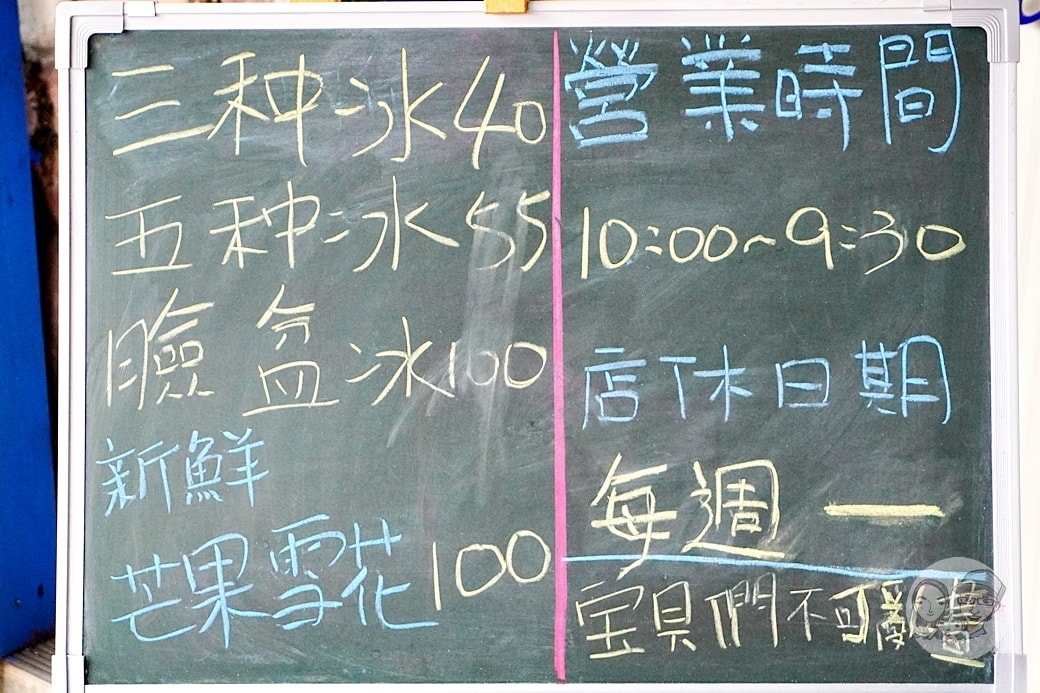 三种冰40
五种冰55
臉盆冰100
新鮮
芒果雪花100
營業時間
10:00~9:30
店休日期
每週一
宝貝們不可亂畫